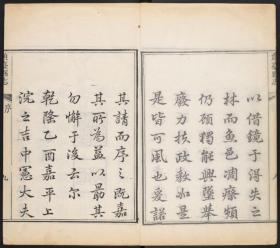 以借鏡于得失之
林而魚邑凋瘵頻
仍頓獨能興墜舉
廢力扶政教
是皆可風也爰諾
其請而序之既嘉
其所為益以勗其
勿懈于後云尔
乾隆乙酉嘉平上
浣之吉中憲大夫
序
九